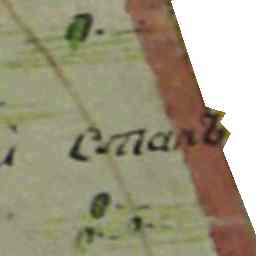 станъ